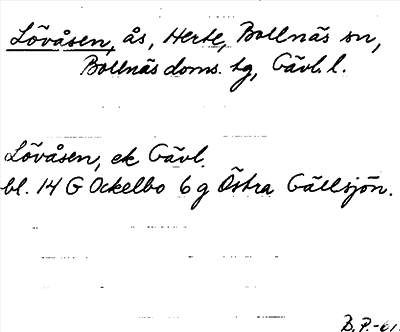 Lövåsen, ås, Herte, Bollnäs sn,
Bollnäs doms. tg, Gävl. l.
Lövåsen, ek Gävl.
bl. 14 G Ockelbo 6 g Östra Gällsjön.
B.P.-61.